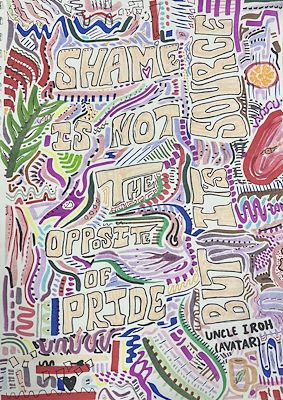 SHAME
IS NOT
THE
OPPOSITE
OF
PRIDE
BUT ITS
SOURCE
UNCLE IROH
(AVATAR)